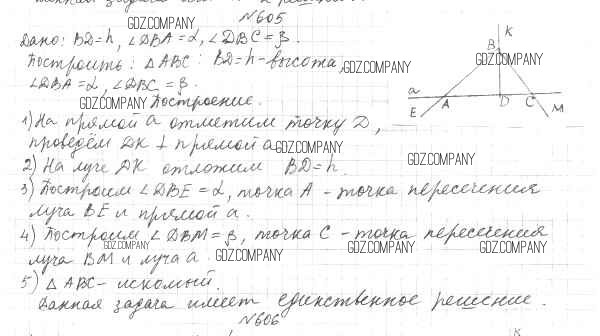 №605
GDZ.COMPANY
Дано: BD=h, ∠DBA=α, ∠DBC=β.
Построить: △ABC: BD=h-высота, GDZ.COMPANY
∠DBA=α, ∠DBC=β.
GDZ.COMPANY Построение.
1) На прямой a отметим точку D,
проведём DK ⊥ прямой a GDZ.COMPANY
2) На луче DK отложим BD=h.
3) Построим ∠DBE=α, точка A - точка пересечения
луча BE и прямой a.
4) Построим ∠DBM=β, точка C - точка пересечения
GDZ.COMPANY GDZ.COMPANY GDZ.COMPANY
луча BM и луча a GDZ.COMPANY
5) △ABC- искомый.
Данная задача имеет единственное решение.
№606
K
B
GDZ.COMPANY
a
A D C
E M
GDZ.COMPANY